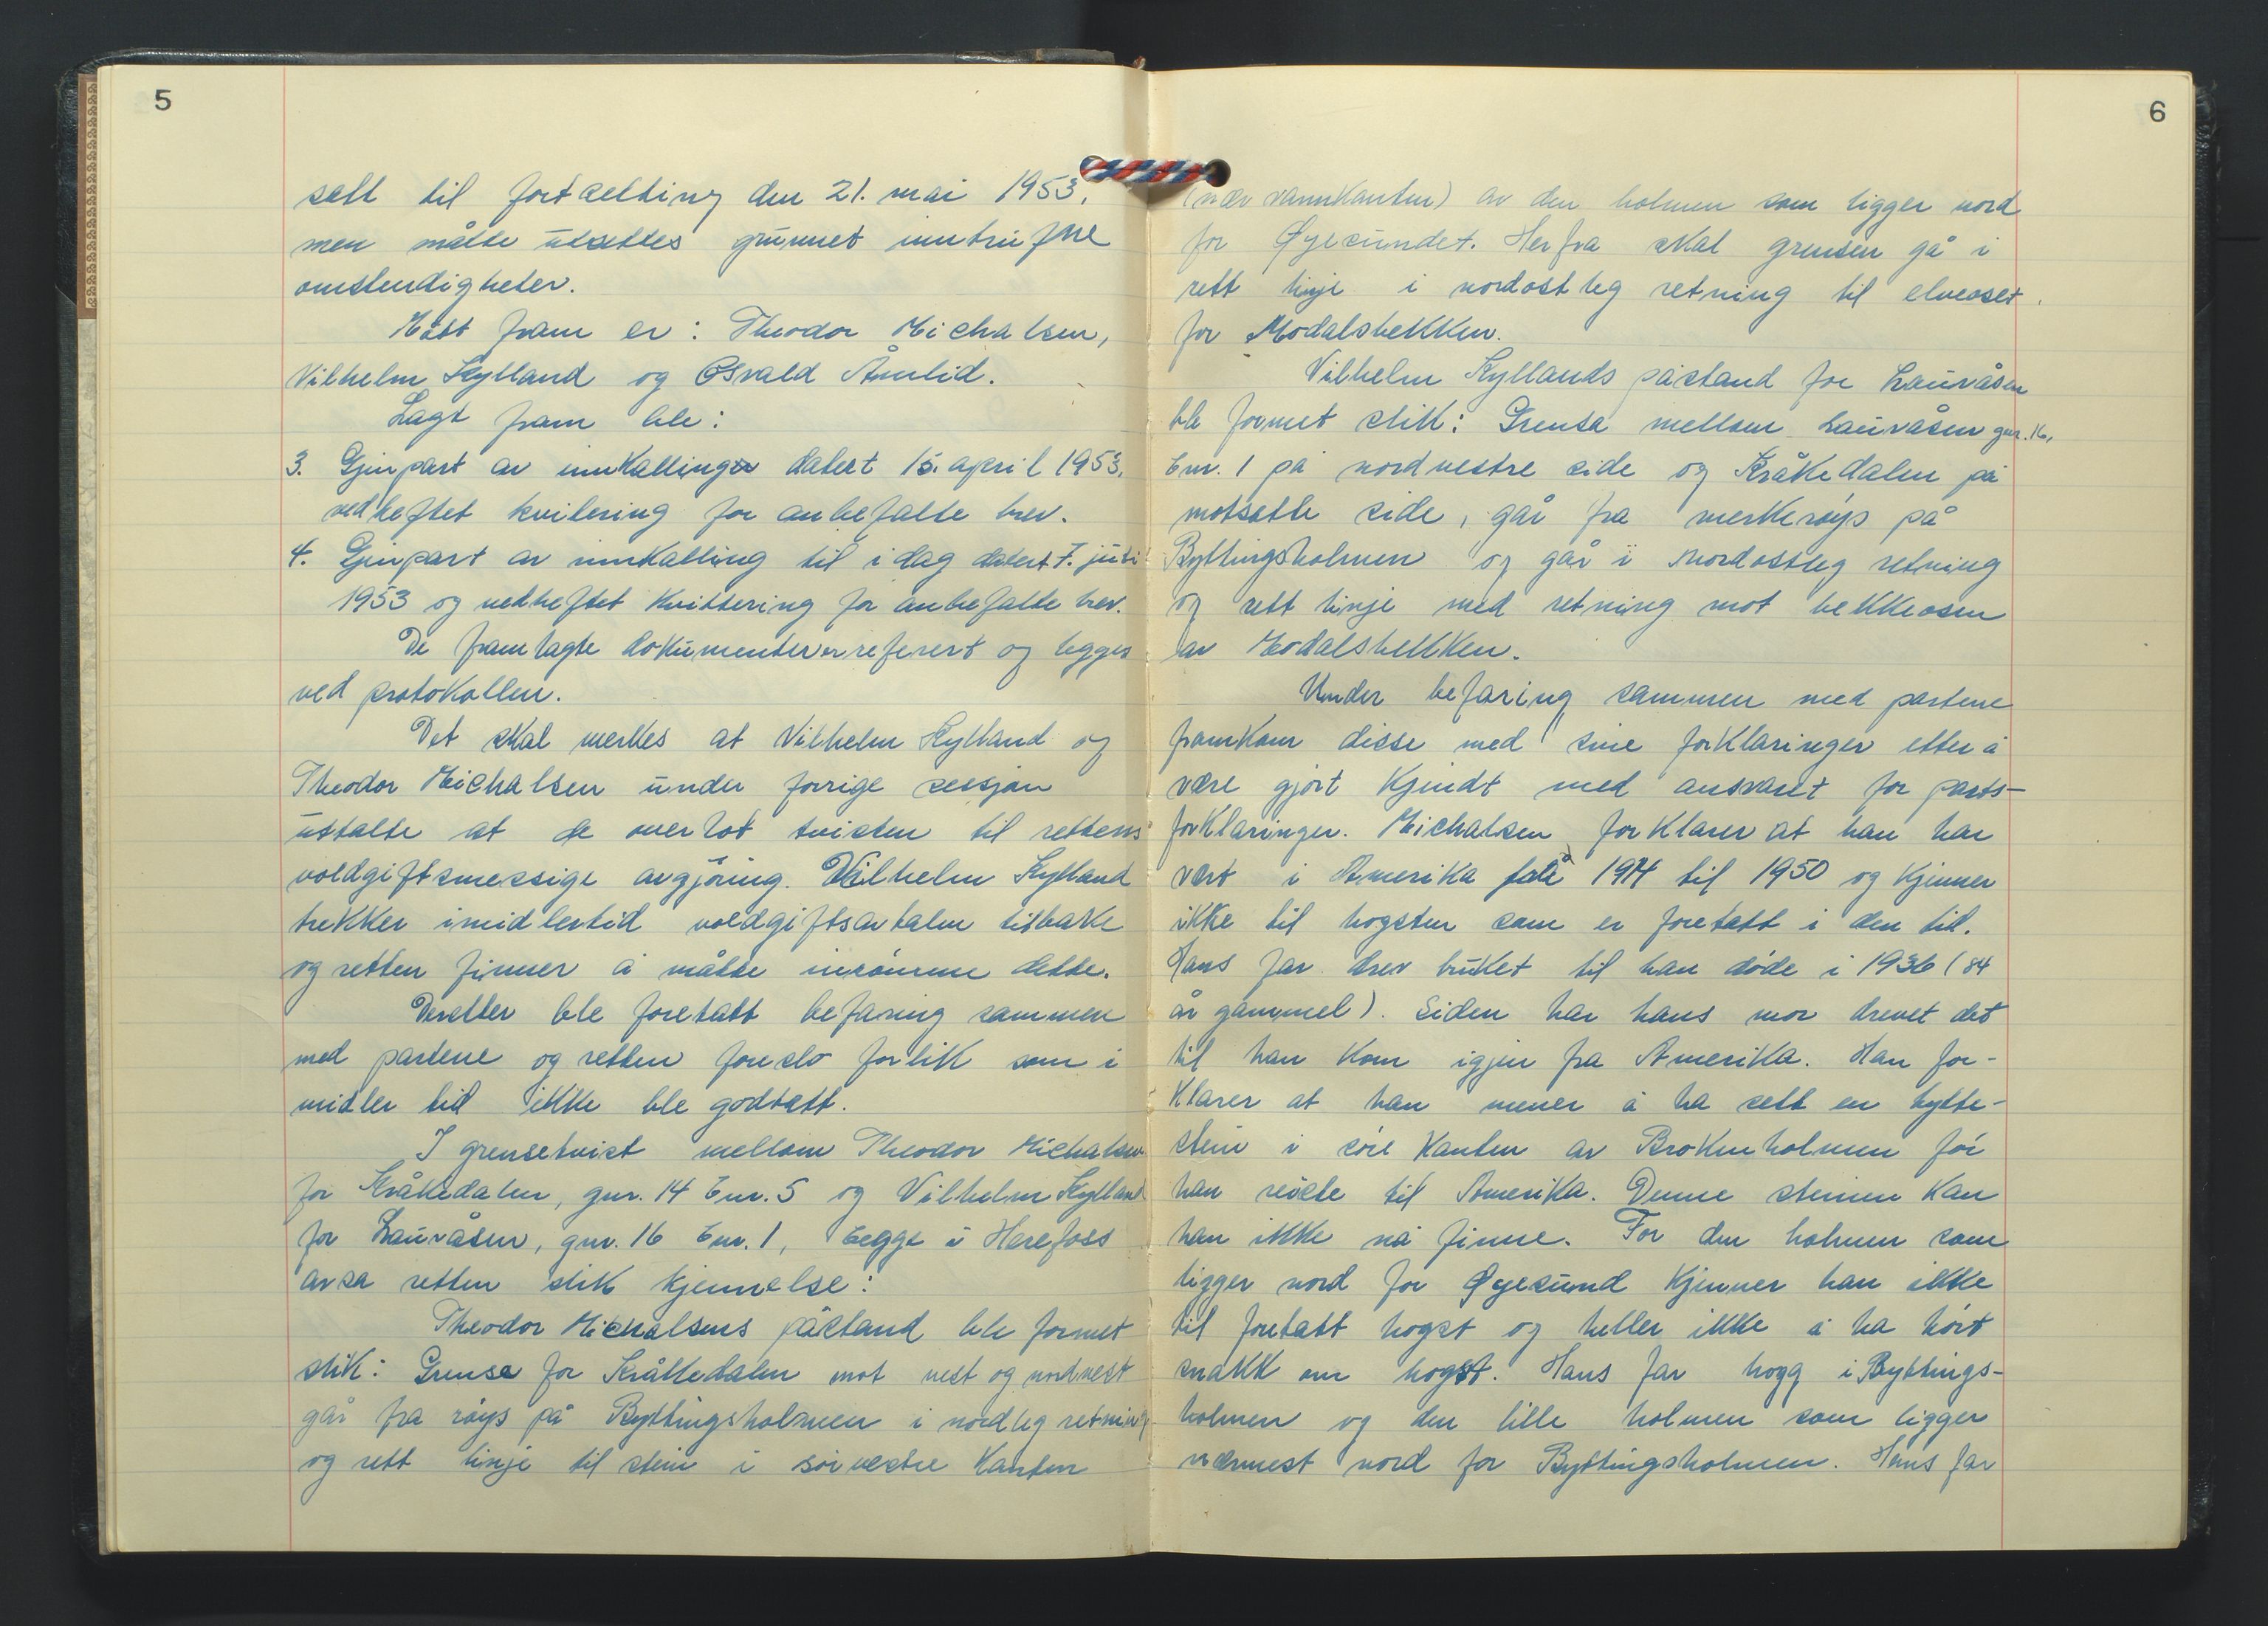 5
satt til fortsetting den 21. mai 1953,
men måtte utsettes grunnet inntrufne
omstendigheter.
Møtt fram er: Theodor Michalsen,
Vilhelm Kylland og Osvald Åmlid.
Lagt fram ble:
3. Gjenpart av innkalling datert 15. april 1953,
vedheftet kvitering for anbefalte brev.
4. Gjenpart av innkalling til i dag datert 7. juli
1953 og vedheftet kvittering for anbefalte brev.
De framlagte dokumenter er referert og legges
ved protokollen.
Det skal merkes at Vilhelm Kylland og
Theodor Michalsen under forrige sesjon
uttalte at de overlot tvisten til rettens
voldgiftsmessige avgjøring. Vilhelm Kylland
trekker imidlertid voldgiftsavtalen tilbake
og retten finner å måtte innrømme dette.
Deretter ble foretatt befaring sammen
med partene og retten foreslo forlik som i
midler tid ikke ble godtatt.
I grensetvist mellom Theodor Michalsen
for Kråkedalen, gnr. 14 bnr. 5 og Vilhelm Kylland
for Lauvåsen, gnr. 16 bnr. 1, begge i Herefoss
avsa retten slik kjennelse:
Theodor Michalsens påstand ble formet
slik: Grensa for Kråkedalen mot vest og nordvest
går fra røys på Byttingsholmen i nordleg retning
og rett linje til stein i sørvestre kanten
6
(nær vannkanten) av den holmen som ligger nord
for Øyesundet. Herfra skal grensen gå i
rett linje i nordostleg retning til elveoset
for Modalsbekken.
Vilhelm Kyllands påstand for Lauvåsen
ble formet slik: Grensa mellom Lauvåsen gnr. 16,
bnr. 1 på nordvestre side og Kråkedalen på
motsatte side, går fra merkerøys på
Byttingsholmen og går i nordostleg retning
og rett linje med retning mot bekkeosen
av Modalsbekken.
Under befaring sammen med partene
framkom disse med sine forklaringer etter å
være gjort kjendt med ansvaret for parts-
forklaringer. Michalsen forklarer at han har
vært i Amerika fra 1914 til 1950 og kjenner
ikke til hogsten som er foretatt i den tid.
Hans far drev bruket til han døde i 1936 (84
år gammel). Siden har hans mor drevet det
til han kom igjen fra Amerika. Han for-
klarer at han mener å ha sett en bytte-
stein i søre kanten av Brokenholmen før
han reiste til Amerika. Denne steinen kan
han ikke nå finne. For den holmen som
ligger nord for Øyesund kjenner han ikke
til foretatt hogst og heller ikke å ha hørt
snakk om hogst. Hans far hogg i Byttings-
holmen og den lille holmen som ligger
nærmest nord for Byttingsholmen. Hans far